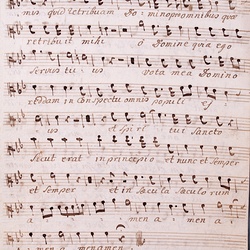 mus quid retribuam Domino pro omnibus quae
retribuit mihi o Domine quia ego
servus tuus vota mea Domino
reddam in conspectu omnis populi ej
us et spiritui Sancto
Sicut erat in principio et nunc et semper
et semper et in saecula saeculorum
a men amen a
men a men amen